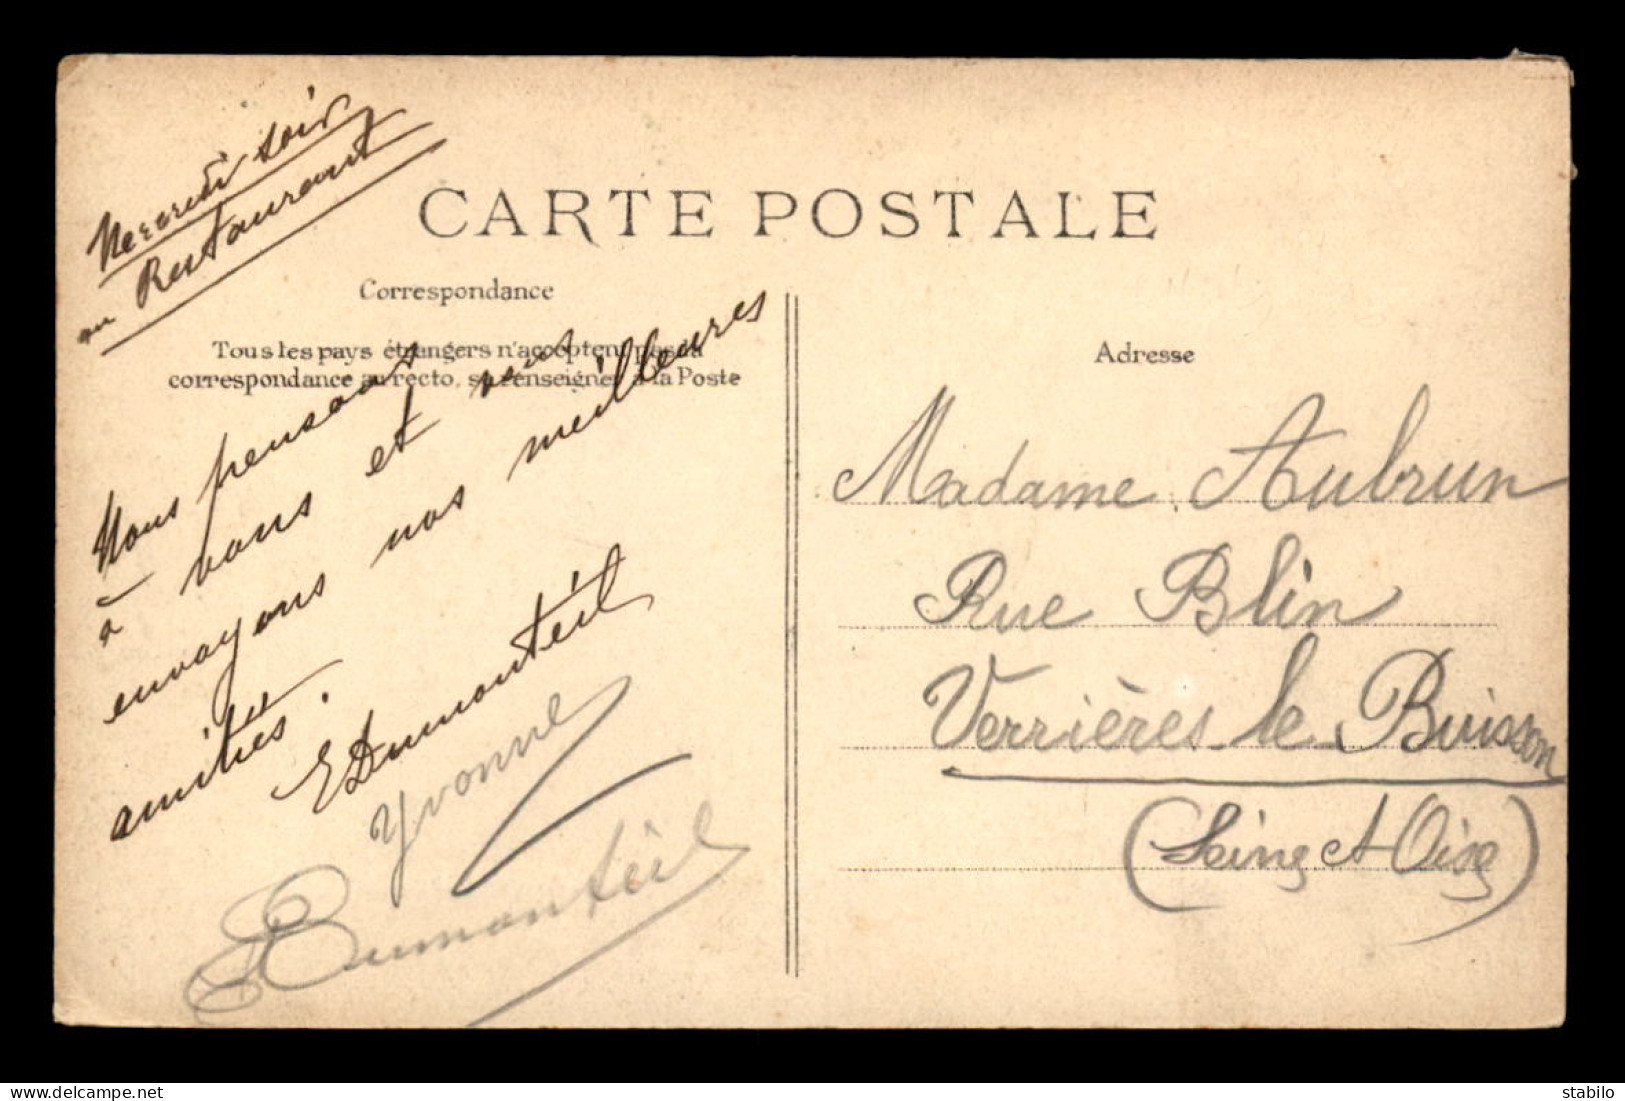 Mercredi soir
au Restaurant
CARTE POSTALE
Correspondance
Tous les pays étrangers n'acceptent pas la
correspondance au recto, se renseigner à la Poste
Nous pensons
à vous et vous
envoyons nos meilleures
amitiés.
EDumonteil
Yvonne
Dumonteil
Adresse
Madame Aubrun
Rue Blin
Verrières le Buisson
(Seine et Oise)
delcampe.net
stabilo